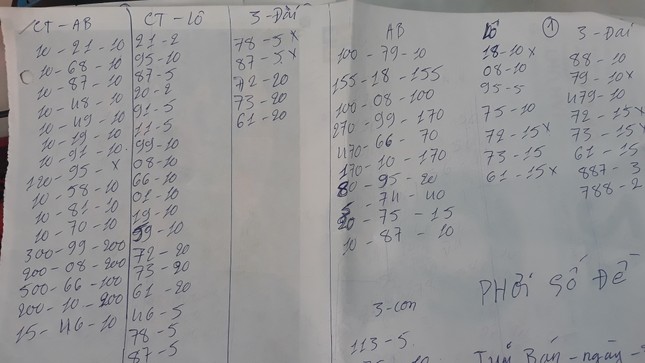 CT-AB
10-21-10
10-68-10
10-87-10
10-48-10
10-49-10
10-19-10
10-91-10
120-95-x
10-58-10
10-81-10
10-70-10
300-99-200
200-08-200
500-66-100
200-10-200
15-46-10
CT-Lô
21-2
95-10
87-5
20-2
91-5
11-5
99-10
08-10
66-10
01-10
19-10
59-10
72-20
73-20
61-20
46-5
78-5
87-5
3-Đài
78-5x
87-5x
72-20
73-20
61-20
AB
100-79-10
155-18-155
100-08-100
270-99-170
470-66-70
170-10-170
80-95-20
5-74-40
20-75-15
10-87-10
3-con
113-5
Lô
18-10x
08-10
95-5
75-10
72-15x
73-15
61-15x
1
3-Đài
88-10
79-10x
479-10
72-15x
73-15x
61-15
887-3
788-2
PHƠI SỐ ĐỀ
Bán-ngày-